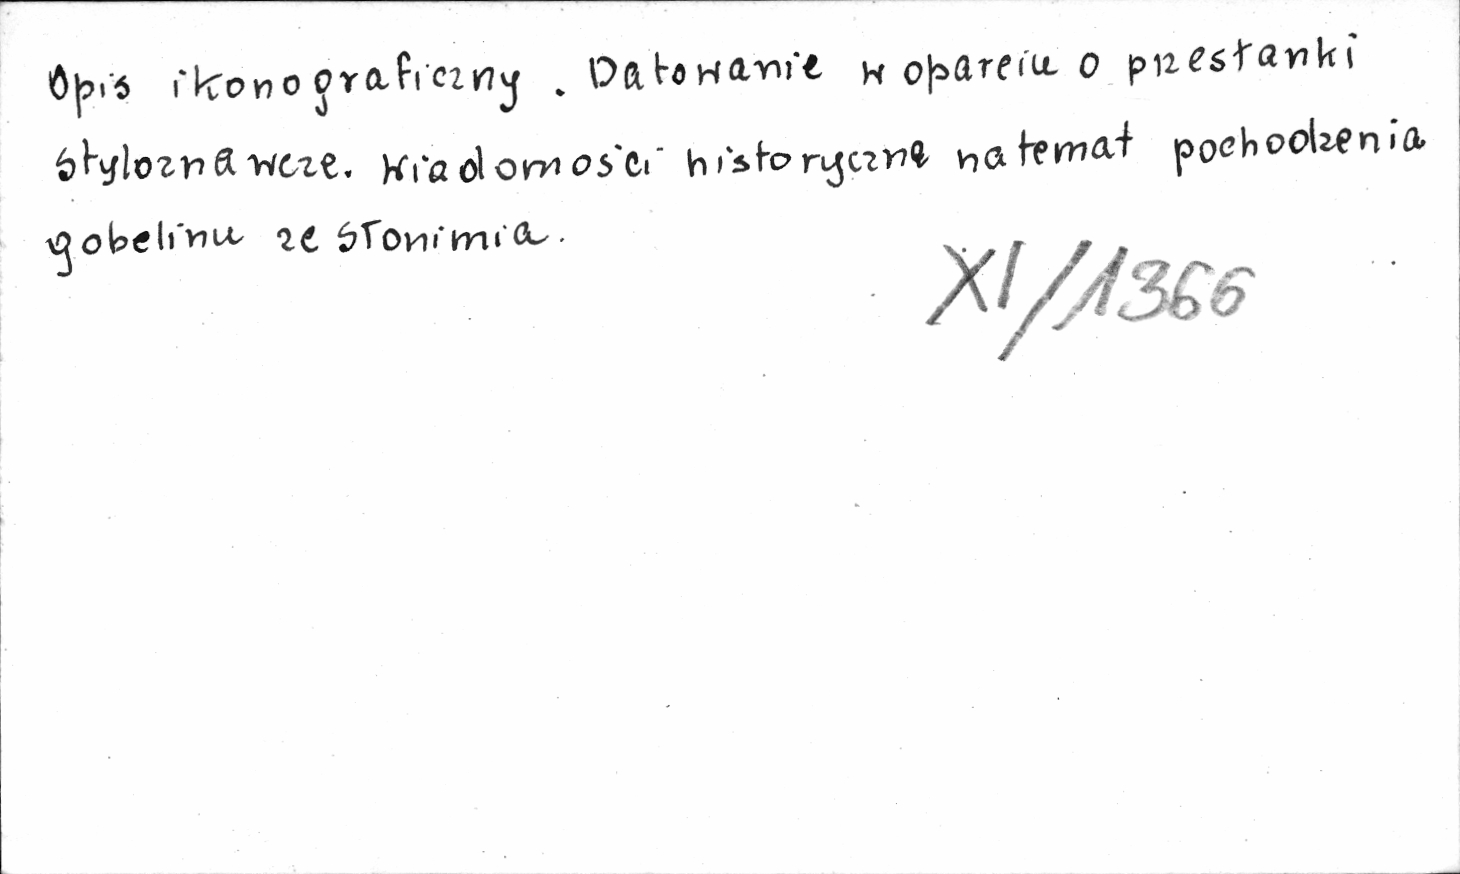 Opis ikonograficzny. Datowanie w oparciu o przesłanki
styloznawcze. Wiadomości historyczne na temat pochodzenia
gobelinu ze Słonimia.
XI/1366